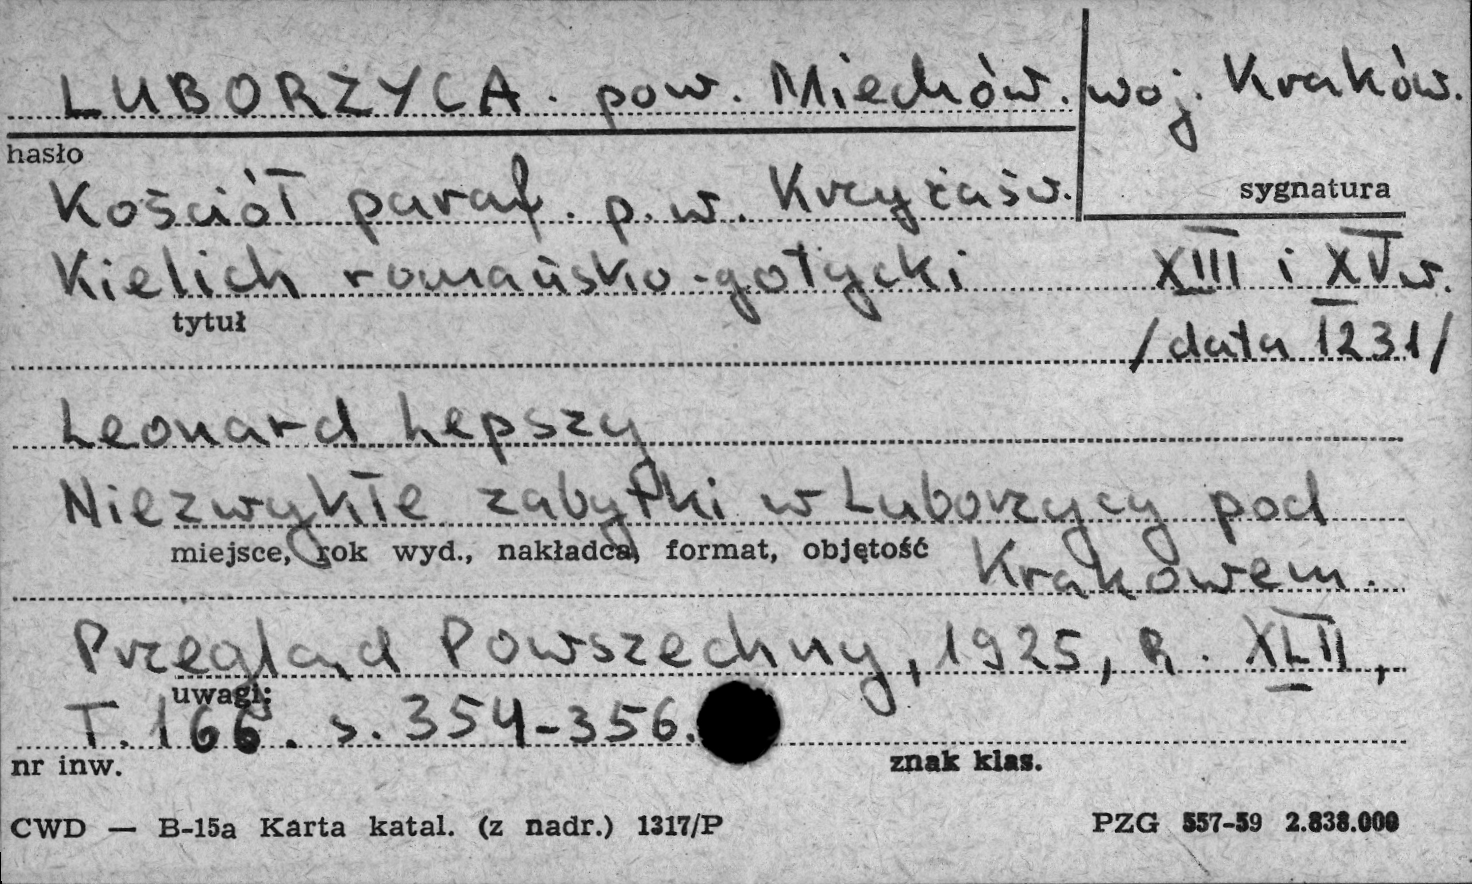 LUBORZYCA. pow. Miechów. woj. Kraków.
hasło
sygnatura
Kościół paraf. p.w. Krzyża św.
Kielich romańsko-gotycki XIII i XV w.
tytuł
/data 1231/
Leonard Lepszy
Niezwykłe zabytki w Luborzycy pod
miejsce, rok wyd., nakładca, format, objętość
Krakowem.
Przegląd Powszechny, 1925, R. XLII,
uwagi:
T. 166. s. 354-356.
nr inw. znak klas.
CWD — B-15a Karta katal. (z nadr.) 1317/P PZG 557-59 2.838.000